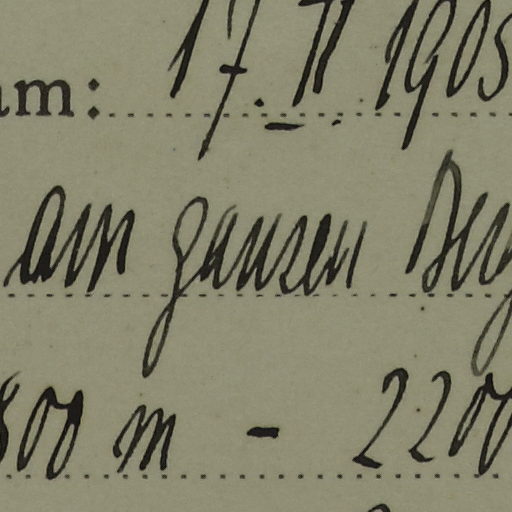 am: 17. II 1905
am ganzen Berg
800 m - 2200